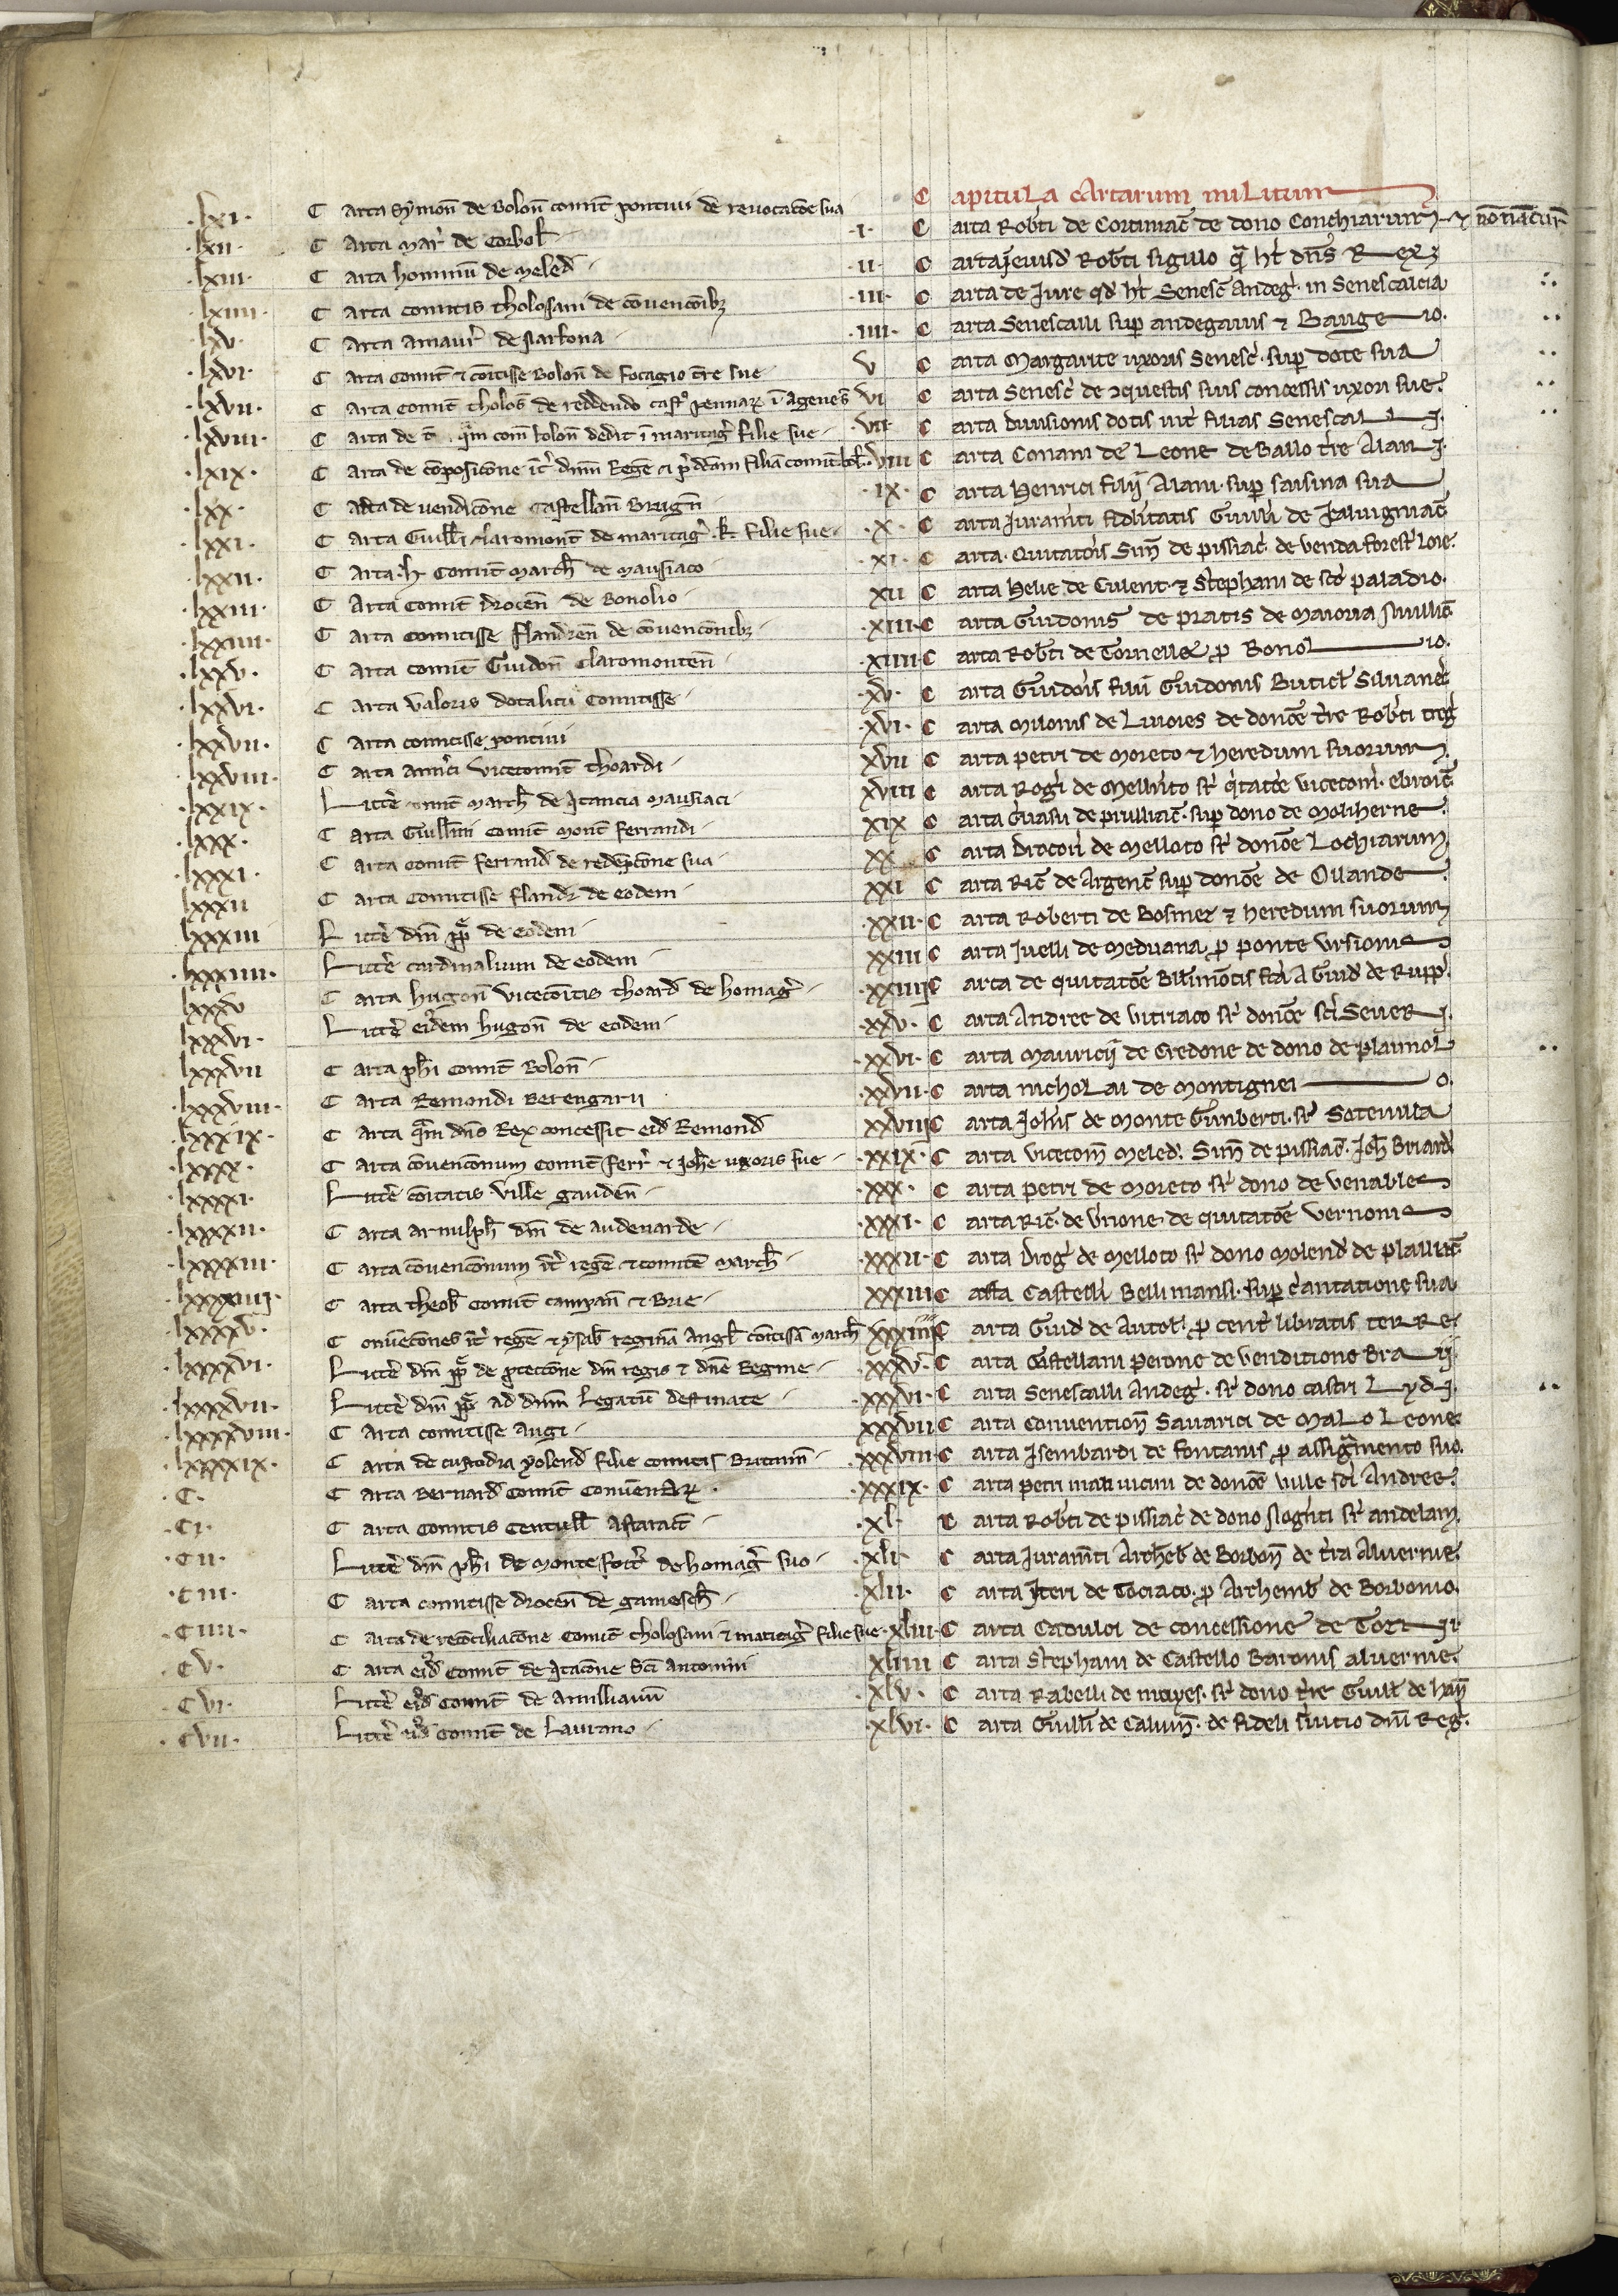 .lxi. Carta Symon̄ de Bolon̄ comit̄ pontiui de reuocatōe sua
.lxii. Carta Mar̄ de Corbol̄
.lxiii. Carta hominū de Meled̄
.lxiiii. Carta comitis tholosani de cōuencōnibꝫ
.lxv. Carta Amaur̄ de Narbona
.lxvi. Carta Comit̄ ⁊ cōitisse Bolon̄ de focagio tr̄e sue
.lxvii. Carta Comit̄ tholos̄ de reddendo castro pennaꝝ ī Agenes̄
.lxviii. Carta de t̄ qm̄ com̄ bolon̄ dedit ī maritaḡ filie sue
.lxix. Carta de cōposicōne īt̄ dnm̄ Regē ⁊ p̄dcām filiā comit̄ bol̄
.lxx. Carta de uendicōne Castellan̄ Brugn̄
.lxxi. Carta Guill̄i claromont̄ de maritaḡ .k. filie sue
.lxxii. Carta .h. Comit̄ March̄ de Mausiaco
.lxxiii. Carta Comit̄ drocen̄ de Bonolio
.lxxiiii. Carta Comitisse flandren̄ de cōuencōnibꝫ
.lxxv. Carta comit̄ Guidon̄ Claromonten̄
.lxxvi. Carta Valoris dotalicii Comitisse
.lxxvii. Carta comitisse pontiui
.lxxviii. Carta Am̄ci vicecomit̄ thoardi
.lxxix. Litter̄ comit̄ march̄ de q̄tancia mausiaci
.lxxx. Carta Guill̄mi comit̄ mont̄ ferrandi
.lxxxi. Carta comit̄ ferrand̄ de redēpcōne sua
.lxxxii Carta Comitisse fland̄ de eodem
.lxxxiii Litter̄ dn̄i pp̄ de eodem
.lxxxiiii. Litter̄ cardinalium de eodem
.lxxxv Carta hugon̄ vicecōitis thoard̄ de homaḡ
.lxxxvi. Litter̄ eiꝰdem hugon̄ de eodem
.lxxxvii Carta ph̄i comit̄ Bolon̄
.lxxxviii. Carta Remondi Berengarii
.lxxxix. Carta qm̄ dn̄s Rex concessit eid̄ Remond̄
.lxxxx. Carta cōuencōnum comit̄ ferr̄ ⁊ Joh̄e uxoris sue
.lxxxxi. Litter̄ cōitatis ville ganden̄
.lxxxxii. Carta arnulph̄ dn̄i de audenarde
.lxxxxiii. Carta cōuencōnum īt̄ regē ⁊ comitē march̄
.lxxxxiiii. Carta theob̄ comit̄ campan̄ ⁊ Brie
.lxxxxv. Conuēcōnes īt̄ regē ⁊ ysab̄ reginā Angl̄ cōitissā march̄
.lxxxxvi. Litter̄ dn̄i pp̄ de ꝓtectōne dn̄i regis ⁊ dn̄e Regine
.lxxxxvii. Litter̄ dn̄i pp̄ ad dnm̄ legatū destinate
.lxxxxviii. Carta comitisse augi
.lxxxxix. Carta de custodia yolend̄ filie comitis Britann̄
.C. Carta Bernard̄ Comit̄ Conuenaꝝ
.Ci. Carta Comitis Centull̄ Astaract̄
.Cii. Litter̄ dn̄i ph̄i de monte fort̄ de homaḡ suo
.Ciii. Carta comitisse drocen̄ de gamesch̄
.Ciiii. Carta de recōciliacōne comit̄ tholosani ⁊ maritaḡ filie sue
.Cv. Carta eiꝰd̄ comit̄ de q̄tacōne Sci Antonini
.Cvi. Litter̄ eiꝰd̄ comit̄ de Amilliauū
.Cvii. Litter̄ eiꝰd̄ comit̄ de Laurano
Capitula cartarum militum
.i. Carta Robt̄i de Cortiniac̄ de dono Conchiarum ⁊ nōnācur̄
.ii. Carta eiusd̄ Robt̄i sigillo q̄ ht̄ dn̄s Rex
.iii. Carta de Jure qd̄ ht̄ Senesc̄ Andeḡ. in Senescalcia
.iiii. Carta Senescalli sup̄ andegauis ⁊ Baugeio.
v Carta Margarite uxoris Senesc̄. sup̄ dote sua
vi Carta Senesc̄ de ꝯquestis suis concessis uxori sue.
.vii. Carta diuisionis dotis int̄ filias Senescalli.
.viii Carta Conani de Leone de Ballo tr̄e Alani.
.ix. Carta Henrici filij Alani. sup̄ saisina sua
.x. Carta Juram̄ti fidelitatis Guill̄i de Saluigniac̄
.xi. Carta. Quitatōis Sim̄ de pissiac̄. de venda forest̄ loie.
xii Carta Helie de Culent. ⁊ Stephani de sc̄o paladio.
.xiii. Carta Guidonis de pratis de Maioria
.xiiii. Carta Robt̄i de Tornella ꝓ Bonolio.
.xv. Carta Guidōis filii Guidonis Buticl̄ Siluanec̄
.xvi. Carta Milonis de Liuoies de donōe tr̄e Robt̄i
xvii Carta petri de Moreto ⁊ heredum suorum
xviii Carta Rog̃i de Mell̄nto sr̄ q̄tatōe vicecom̄. ebroic̄
xix Carta Guasli de prulliac̄. sup̄ dono de Moliherne
xx Carta Droconi de Melloto sr̄ donōe Lochiarum
xxi Carta Ric̄ de Argenc̄ sup̄ donōe de Ollande
.xxii. Carta Roberti de Bosmer ⁊ heredum suorum
xxiii Carta Juelli de Meduana ꝓ ponte Vrsionis
.xxiiii Carta de quitatōe Bellimōtis fc̄a A Guid̄ de Rupp̄.
.xxv. Carta Andree de vitriaco sr̄ donōe sc̄i Seueri.
.xxvi. Carta Mauricij de Credone de dono de plaimol
.xxvii. Carta nicholai de Montigneio.
xxviii Carta Joh̄is de Monte Gunberti. sr̄ Soteuilla
.xxix. Carta vicecom̄ Meled̄. Sim̄ de pissiac̄. Joh̄ Briard̄
.xxx. Carta petri de Moreto sr̄ dono de venables
.xxxi. Carta Ric̄. de Vrnone de quitatōe vernonis
.xxxii. Carta Droḡ de Melloto sr̄ dono Molend̄ de plalliac̄
xxxiii Carta Castelli Bellimansi. sup̄ cantatione sua
xxxiiii Carta Guid̄ de Autol̄. ꝓ cent̄ libratis terre.
.xxxv. Carta Castellani perone de venditione Braij.
.xxxvi. Carta Senescalli Andeḡ. sr̄ dono castri Lydi.
xxxvii Carta Convention̄ Sauarici de Malo Leone
.xxxviii. Carta Isembardi de fontanis ꝓ assignamento suo.
.xxxix. Carta petri mali uicini de donōe ville sc̄i Andree.
.xl. Carta Robt̄i de pissiac̄ de dono Nogn̄ti sr̄ andelam.
.xli. Carta Juram̄ti Archeb̄ de Borbon̄ de tr̄a Aluernie.
.xlii. Carta Iteri de Tociaco. ꝓ Archemb̄ de Borbonio.
.xliii. Carta Cadulci de concessione de Torii
xliiii Carta Stephani de Castello Baronis aluernie.
.xlv. Carta Rabelli de muyes. sr̄ dono tr̄e Guill̄ de
.xlvi. Carta Guill̄i de Caluin̄. de fideli s̄uitio dn̄i Reḡ.